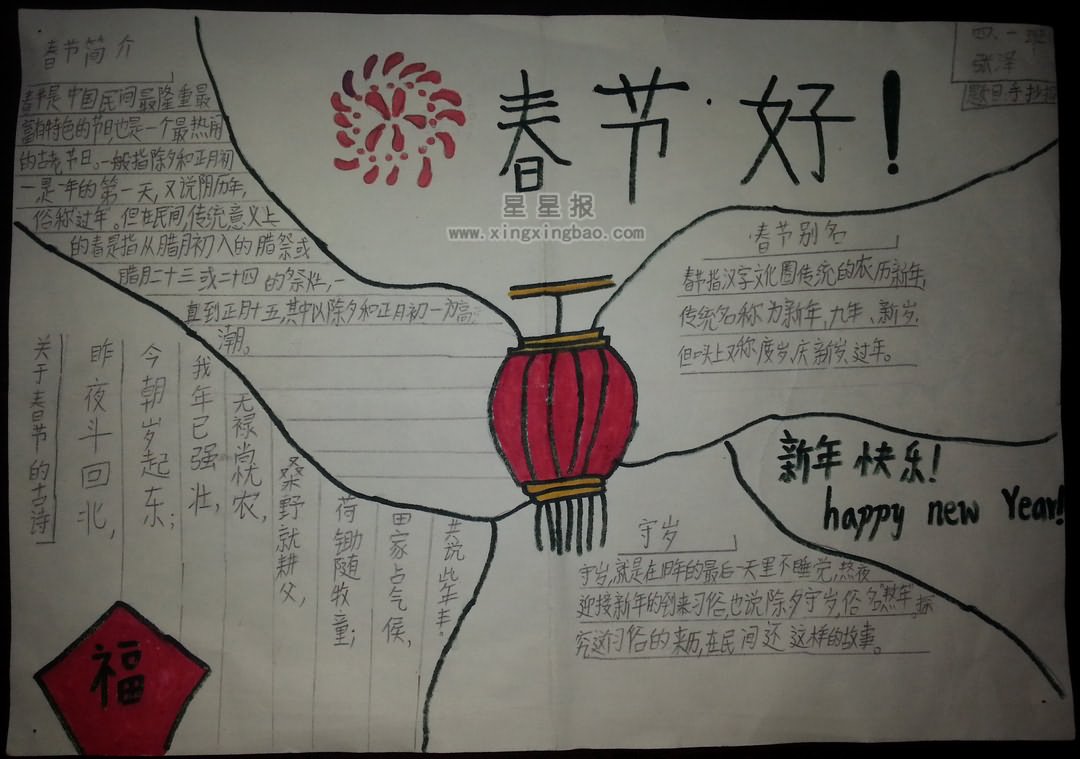 春节好!
四.一班
张泽
题目手抄报
星星报
www.xingxingbao.com
春节简介
春节是中国民间最隆重最
富有特色的节日,也是一个最热闹
的古老节日。一般指除夕和正月初
一是一年的第一天,又说阴历年,
俗称过年。但在民间,传统意义上
的春是指从腊月初入的腊祭或
腊月二十三或二十四的祭灶,一
直到正月十五,其中以除夕和正月初一为高
潮。
春节别名
春节指汉字文化圈传统的农历新年,
传统名称为新年,九年、新岁,
但口头上又称度岁、庆新岁、过年。
新年快乐!
happy new Year!
守岁
守岁,就是在旧年的最后一天里不睡觉,熬夜
迎接新年的到来习俗,也说除夕守岁,俗名"熬年"。探
究这习俗的来历,在民间还 这样的故事。
关于春节的古诗
昨夜斗回北,
今朝岁起东;
我年已强壮,
无禄尚忧农,
桑野就耕父,
荷锄随牧童;
田家占气候,
共说些年丰。
福